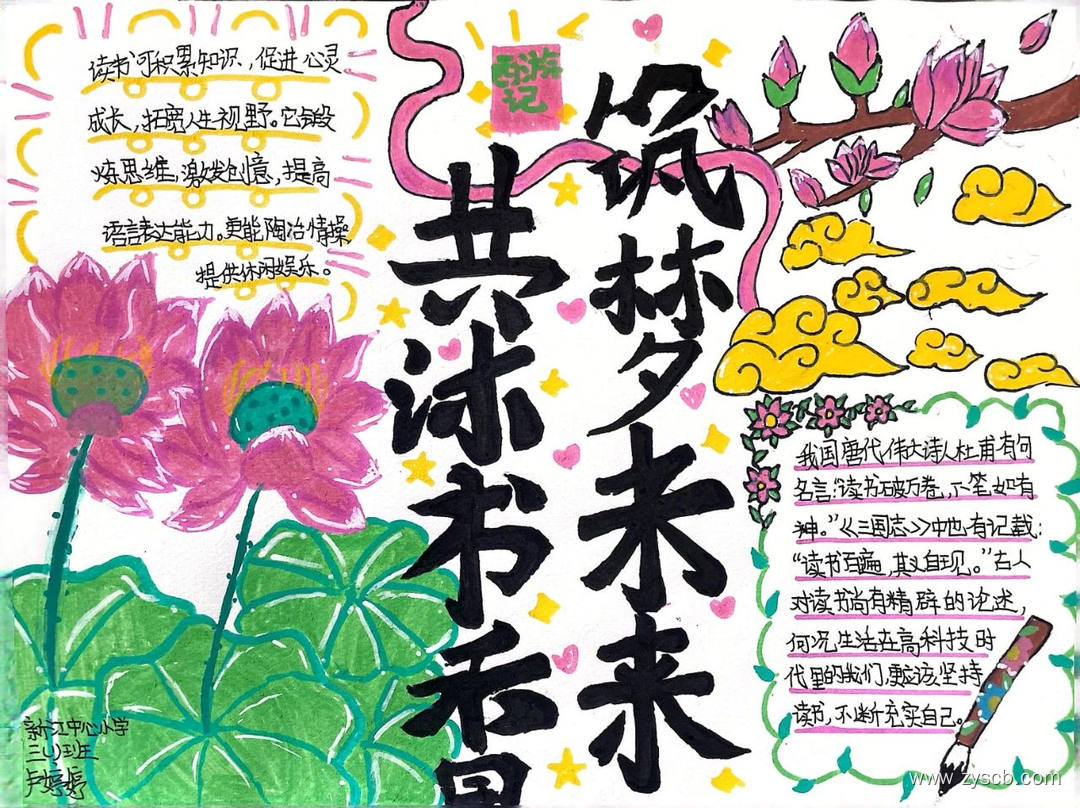 读书可积累知识，促进心灵
成长，拓宽人生视野。它锻
炼思维，激发创意，提高
语言表达能力。更能陶冶情操
提供休闲娱乐。
西游
记
筑梦未来
共沐书香
我国唐代伟大诗人杜甫有句
名言：“读书破万卷，下笔如有
神。”《三国志》中也有记载：
“读书百遍，其义自现。”古人
对读书尚有精辟的论述，
何况生活在高科技时
代里的我们，更应该坚持
读书，不断充实自己。
新江中心小学
三(1)班
卢婷婷
www.zyscb.com